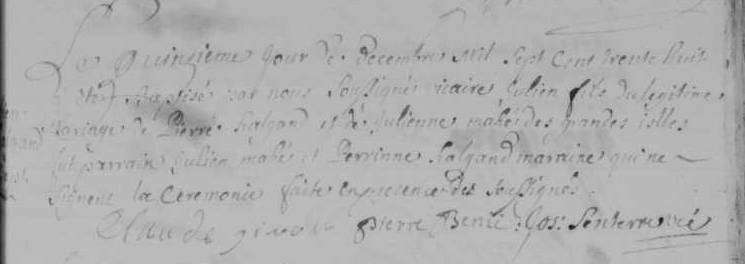 Le Quinzieme jour de decembre Mil Sept Cent trente huit
a été Baptisé par nous Soussigné vicaire Julien fils du legitime
mariage de Pierre halgand et de Julienne mahé des grandes isles
fut parrain Julien mahé et Perrinne halgand marraine qui ne
signent la Ceremonie faite en presence des Soussignés
Claude Pierre Jos: